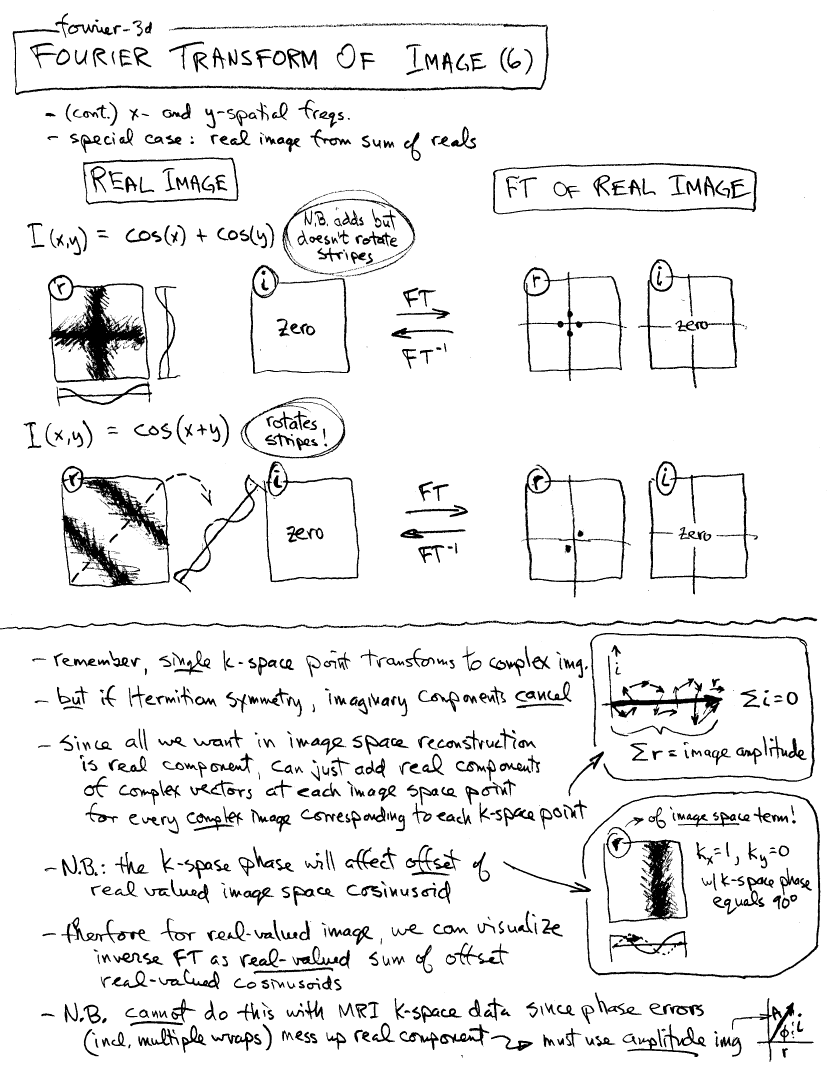 fourier-3d
FOURIER TRANSFORM OF IMAGE (6)
- (cont.) x- and y-spatial freqs.
- special case: real image from sum of reals
REAL IMAGE
FT OF REAL IMAGE
I(x,y) = cos(x) + cos(y)
N.B. adds but
doesn't rotate
stripes
r
i
zero
FT
FT⁻¹
r
i
zero
I(x,y) = cos(x+y)
rotates
stripes!
r
i
zero
FT
FT⁻¹
r
i
zero
- remember, single k-space point transforms to complex img.
- but if Hermitian symmetry, imaginary components cancel
- since all we want in image space reconstruction
is real component, can just add real components
of complex vectors at each image space point
for every complex image corresponding to each k-space point
i
r
Σi=0
Σr = image amplitude
- N.B.: the k-spase phase will affect offset of
real valued image space cosinusoid
of image space term!
r
kx=1, ky=0
w/k-space phase
equals 90°
- therfore for real-valued image, we can visualize
inverse FT as real-valued sum of offset
real-valued cosinusoids
- N.B. cannot do this with MRI k-space data since phase errors
(incl, multiple wraps) mess up real component → must use amplitude img
A
ϕ
i
r